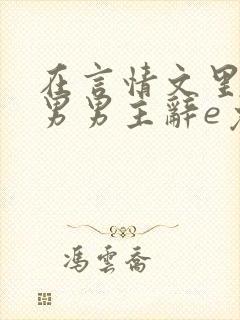 在言情文里
男男主辭e
馮雲喬